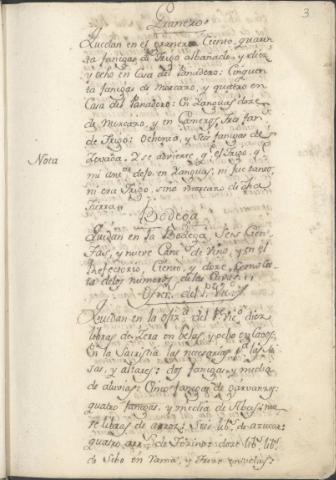 3
Granero
Quedan en el granero Ciento, quaren
ta fanegas de Trigo albañado, y diez
y ocho en Casa del Panadero: Cinquen
ta fanegas de morcaxo, y quatro en
Casa del Panadero: En Zanguas doze
de morcaxo, y en Cameros, seis fan.
de Trigo: Ochenta, y seis fanegas de
Zevada. Y se advierte q.e el Trigo q.e
Nota
mi ante.r dejo en Zanguas, ni fue tanto,
ni era Trigo, sino morcaxo de otra
tierra
Bodega
Quedan en la Bodega Seis Cien
tas, y nueve Can.s de Vino, y en el
Refectorio, Ciento, y doze, Como cons
ta de los numeros de las Cubas
Ofiz.a del P.e Vic.o
Quedan en la ofiz.a del P.e Vic.o diez
libras de Zera en belas, y ocho en
En la Sacristia las necesarias p.a las Mi
sas, y altares: dos fanegas, y media
de aluvias: Cinco fanegas de garvanzos:
quatro fanegas, y media de Abas: nue
be libras de arroz: Seis lib.s de azucar:
quatro arr.s de Tozino: doze lib.s
de Sebo en rama, y treze en velas: